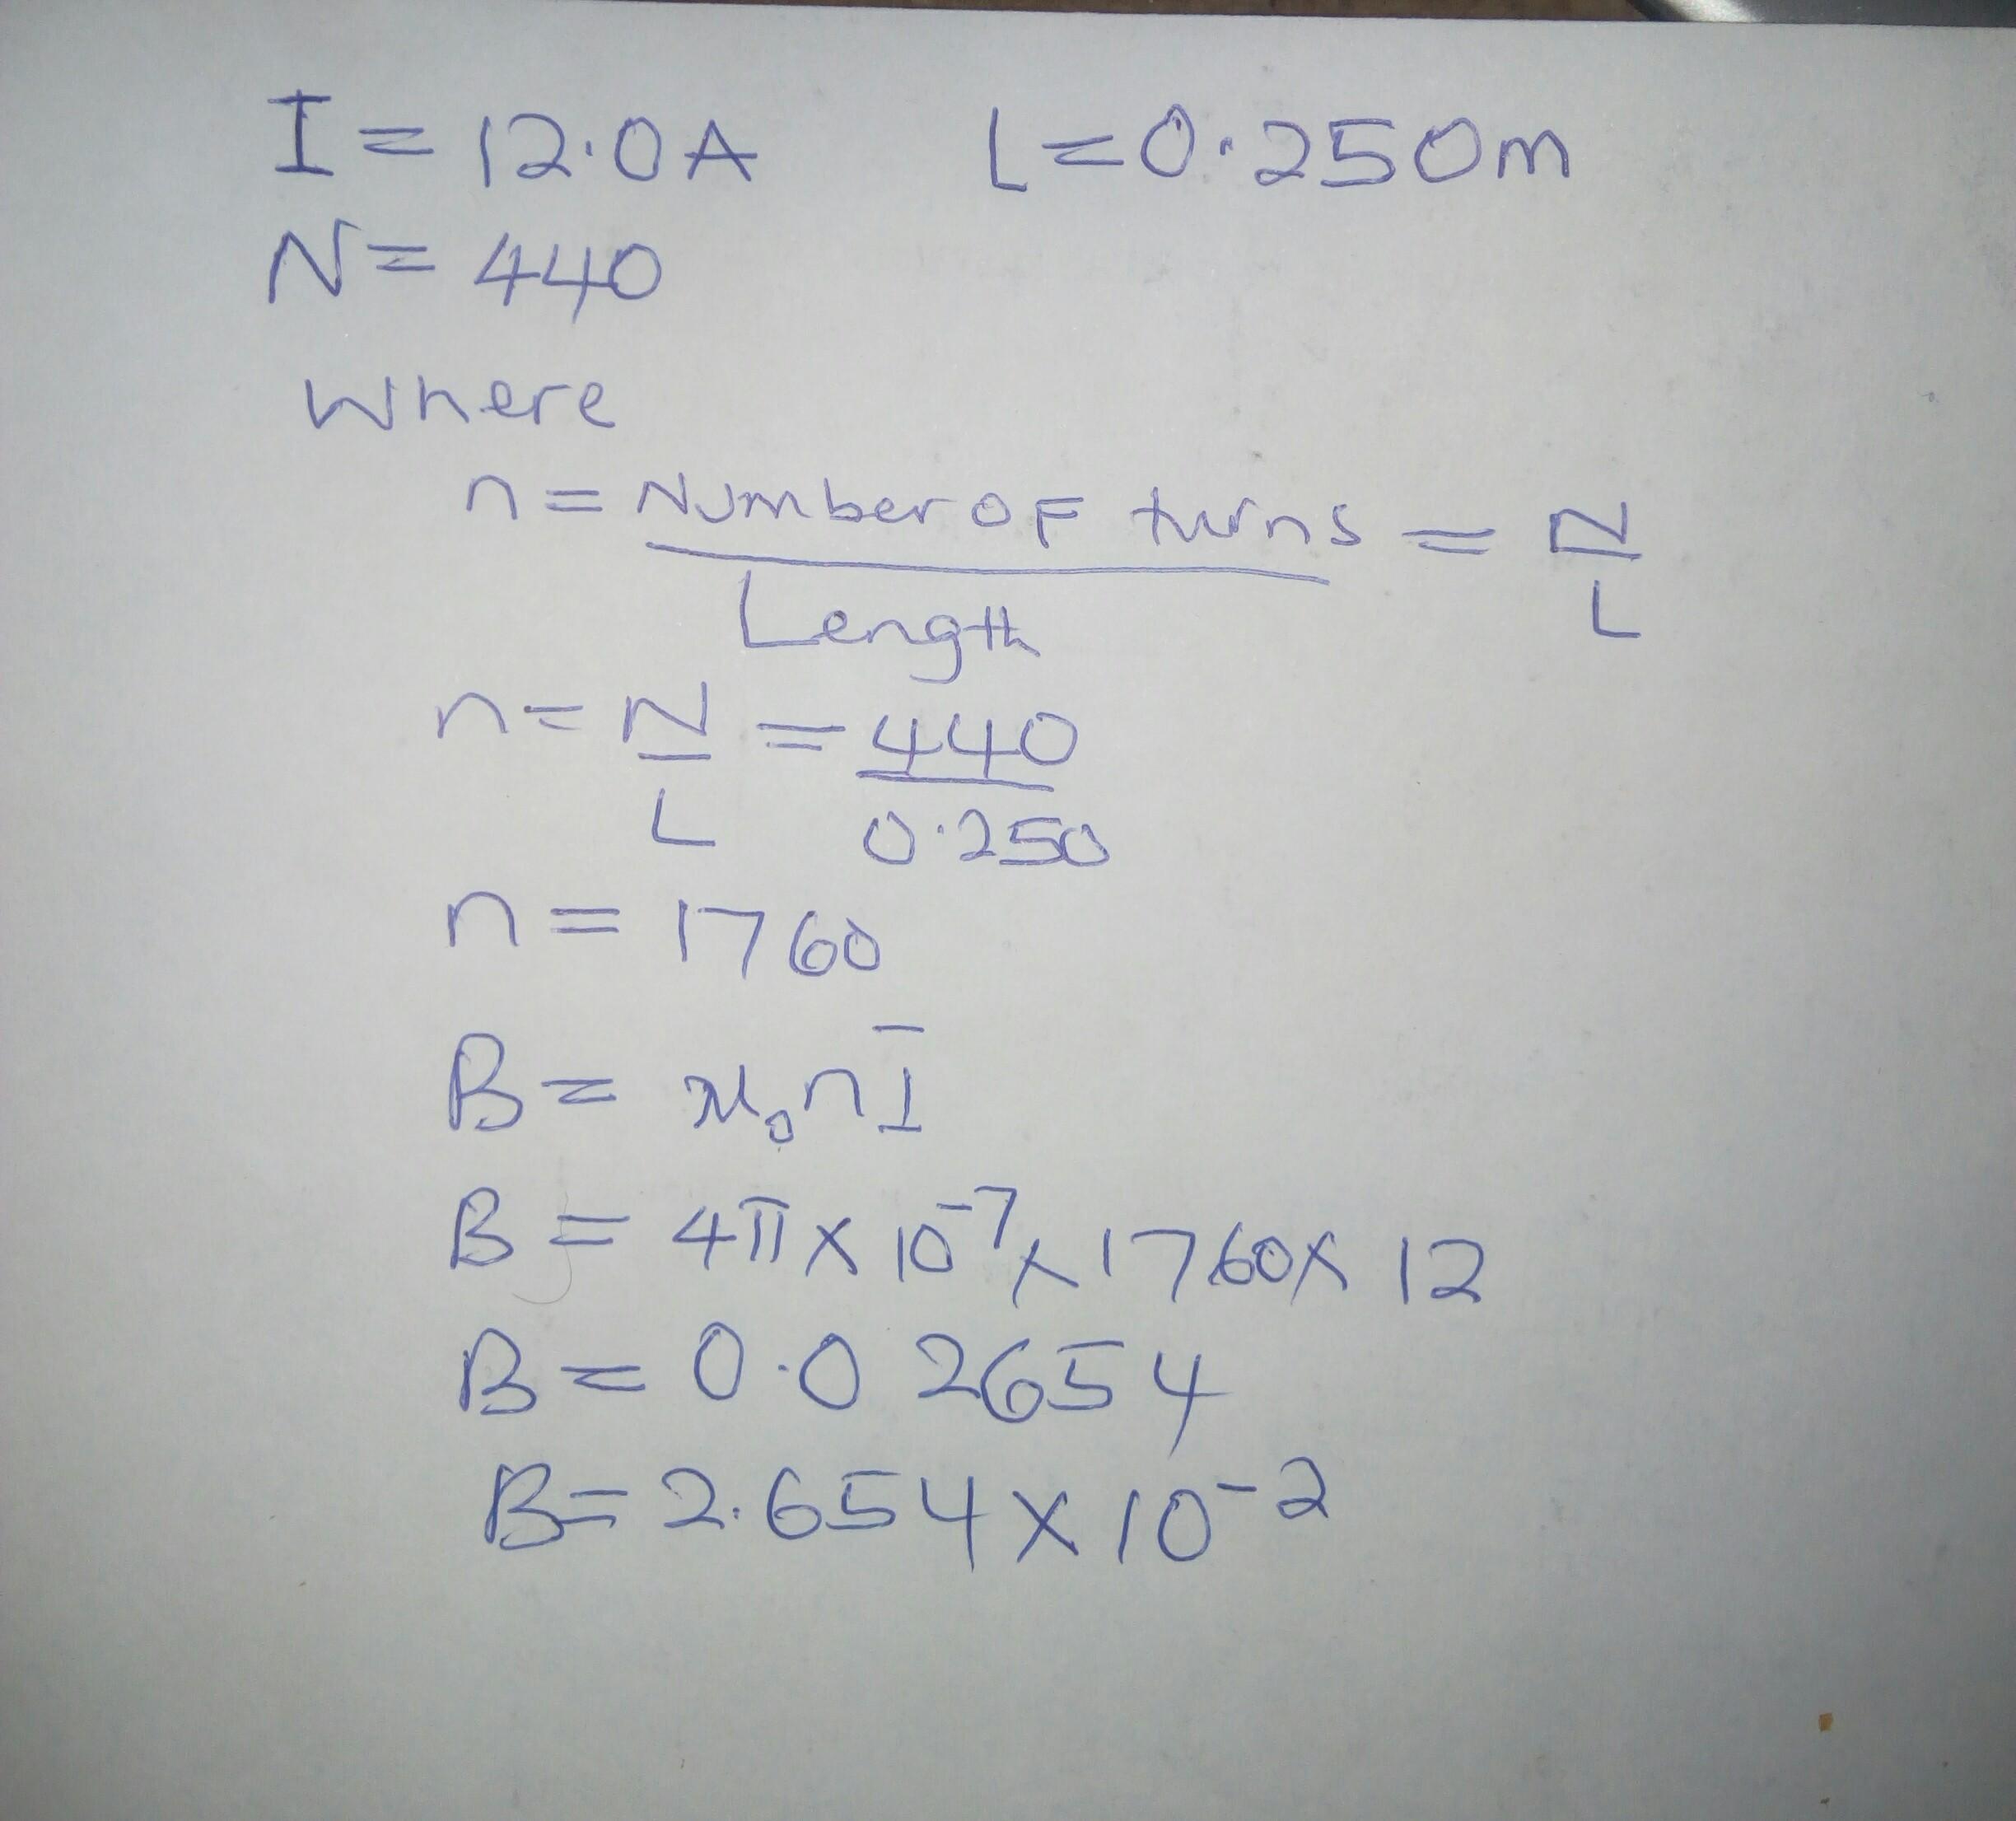 I = 12.0A L = 0.250m
N = 440
Where
n = Number of turns = N
Length L
n = N = 440
L 0.250
n = 1760
B = μ₀nI
B = 4π × 10⁻⁷ × 1760 × 12
B = 0.02654
B = 2.654 × 10⁻²